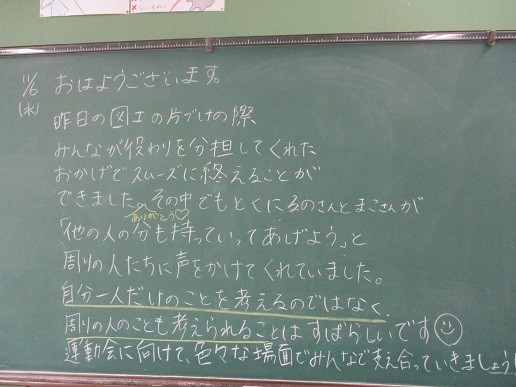 11/6
(水)
おはようございます。
昨日の図工の片づけの際
みんなが役わりを分担してくれた
おかげでスムーズに終えることが
できました。その中でもとくにるのさんとまこさんが
ありがとう♡
「他の人の分も持っていってあげよう」と
周りの人たちに声をかけてくれていました。
自分一人だけのことを考えるのではなく、
周りの人のことも考えられることはすばらしいです☺
運動会に向けて、色々な場面でみんなで支え合っていきましょう